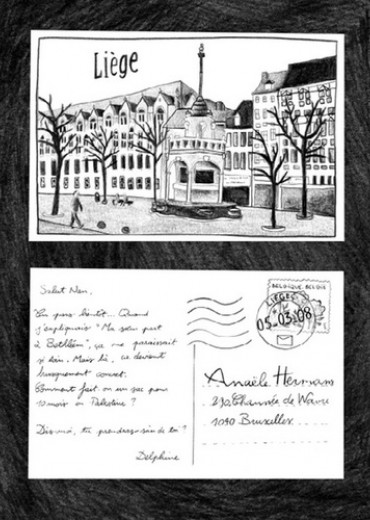 Liège
Salut Nan,
Tu pars bientôt... Quand
j'expliquais "Ma sœur part
à Bethléem", ça me paraissait
si loin. Mais là, ça devient
brusquement concret.
Comment fait-on un sac pour
10 mois en Palestine ?
Dis-moi, tu prendras soin de toi ?
Delphine
BELGIQUE-BELGIË
LIEGE
05-03-08
Anaële Hermans
210, Chaussée de Wavre
1090 Bruxelles